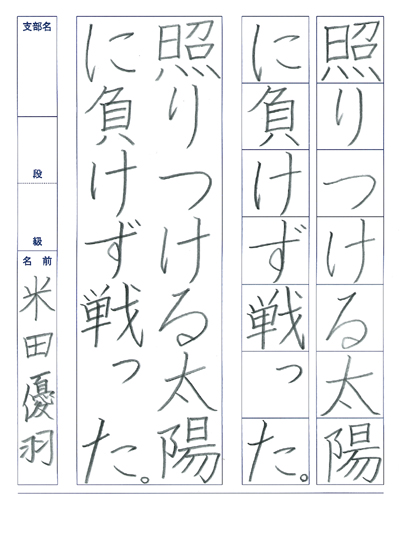 照りつける太陽
に負けず戦った。
照りつける太陽
に負けず戦った。
支部名
段
級
名前
米田優羽